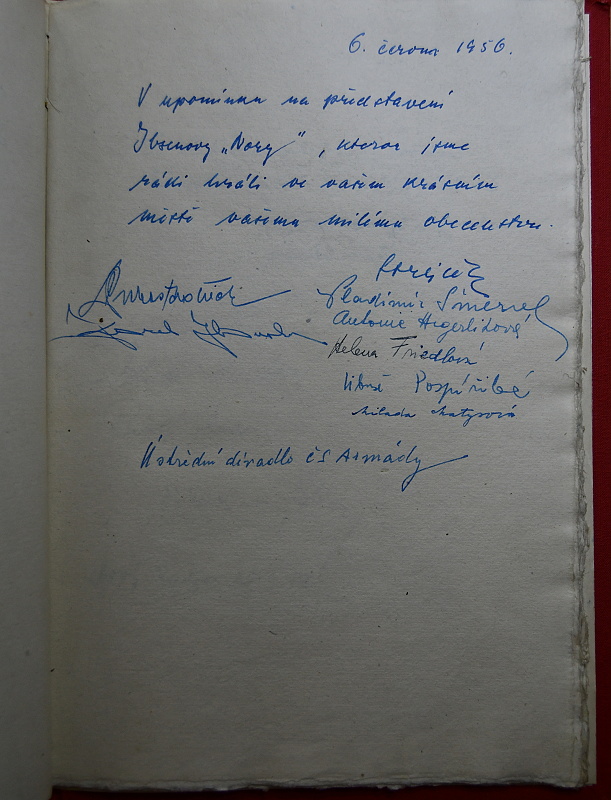 6. června 1956.
V upomínku na představení
Ibsenovy „Nory", kterou jsme
rádi hráli ve vašem krásném
městě vašemu milému obecenstvu.
Vladimír Šmeral
Antonie Hegerlíková
Helena Friedlová
Libuše Pospíšilová
Milada Matysová
Ústřední divadlo čs Armády